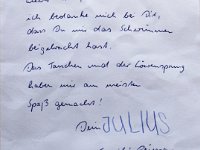 ich bedanke mich bei Dir,
dass Du mir das Schwimmen
beigebracht hast.
Das Tauchen und der Löwensprung
haben mir am meisten
Spaß gemacht!
Dein JULIUS